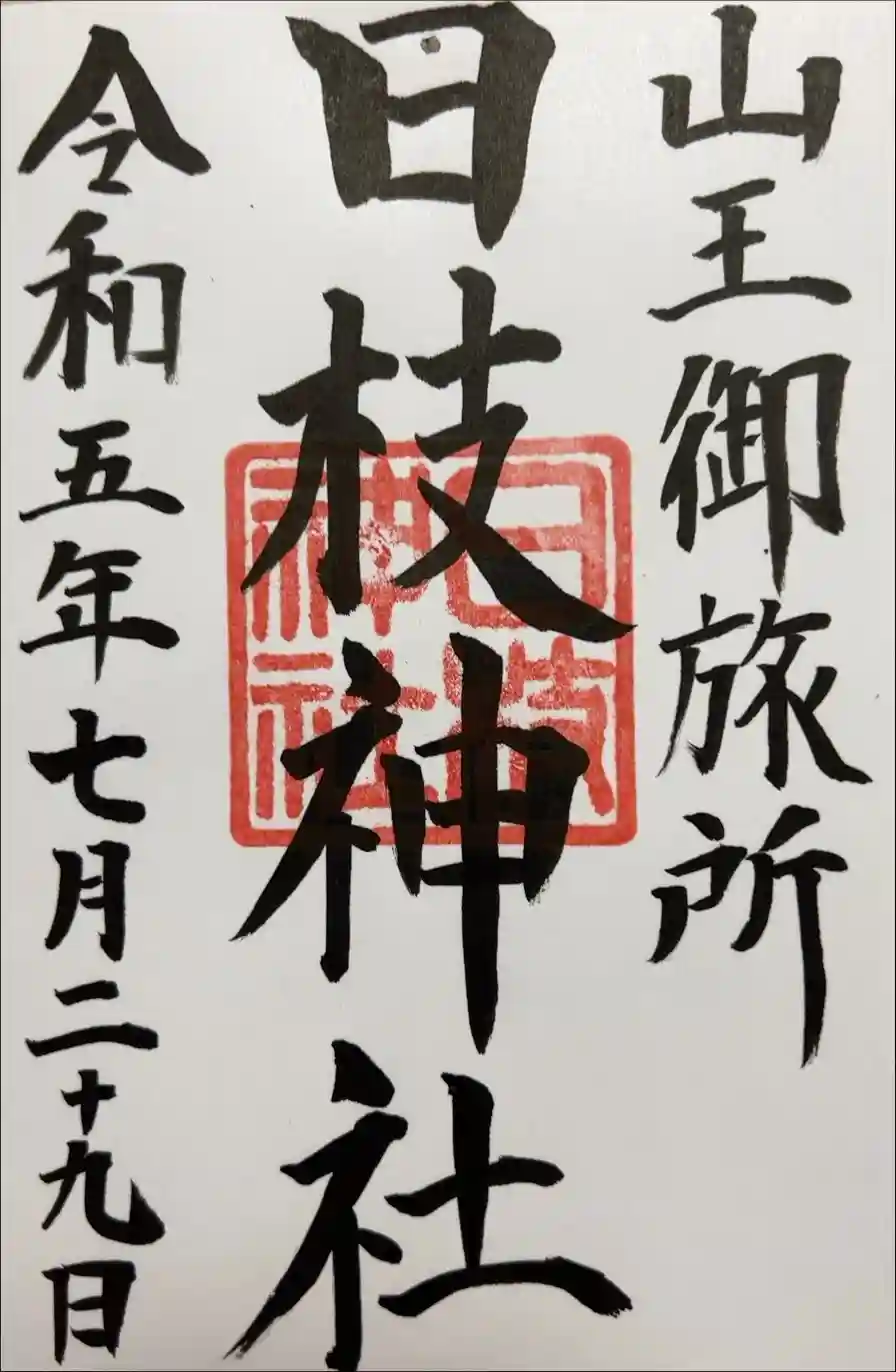 山王御旅所
日枝神社
日枝
神社
令和五年七月二十九日